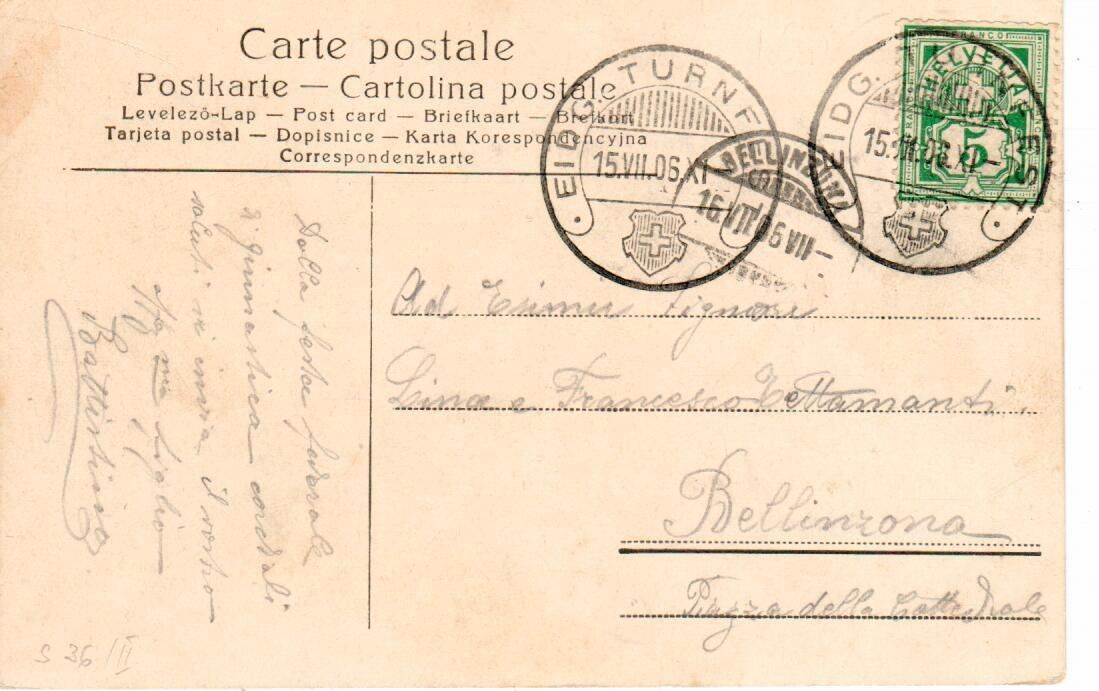 Carte postale
Postkarte — Cartolina postale
Levelező-Lap — Post card — Briefkaart — Brefkort
Tarjeta postal — Dopisnice — Karta Korespondencyjna
Correspondenzkarte
EIDG. TURNFEST
15.VII.06.XI
BELLINZONA
16.VII.06 VII—
EIDG. TURNFEST
15.VII.06.XI—
FRANCO
HELVETIA
5
Dalla festa federale
di ginnastica cordiali
saluti vi invia il vostro
figlio
Battistino
Ad Esimi Signori
Lina e Francesco Tettamanti
Bellinzona
Piazza della Cattedrale
S 36/II